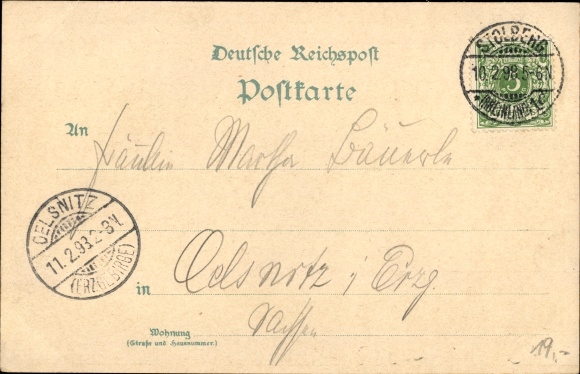 Deutsche Reichspost
Postkarte
STOLBERG
10.2.98.5-6N
5
An
Fräulein Martha Bäuerle
OELSNITZ
11.2.98.2-3N.
(ERZGEBIRGE)
in Oelsnitz i Erzg.
Sachsen
Wohnung
(Straße und Hausnummer.)
19,-